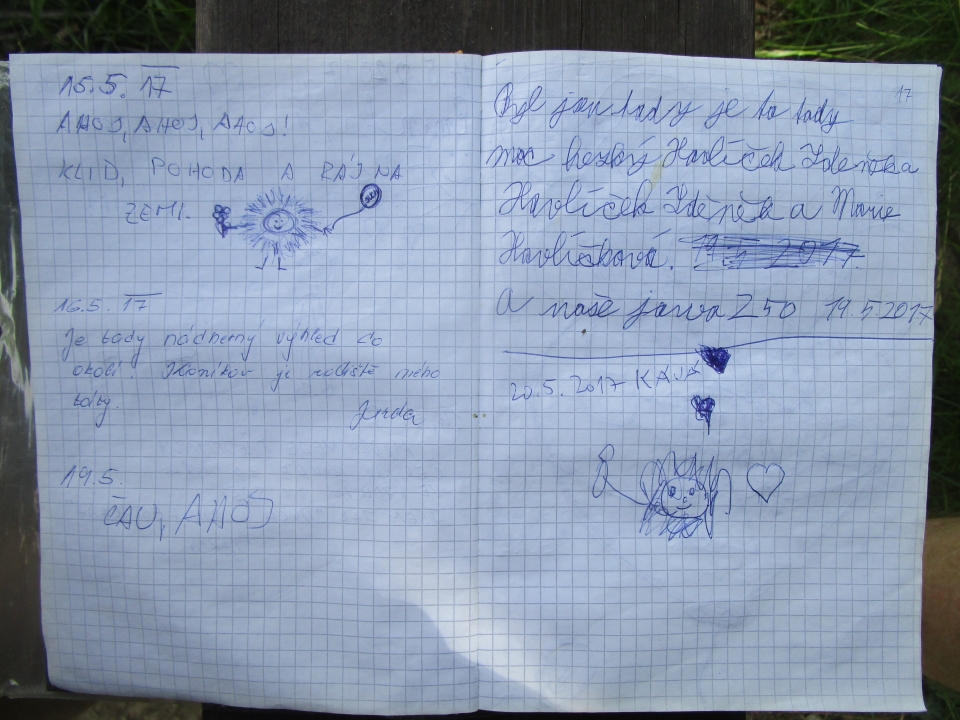 15.5. 17
AHOJ, AHOJ, AHOJ!
KLID, POHODA A RÁJ NA
ZEMI.
16.5. 17
Je tady nádherný výhled do
okolí. je rodiště mého
táty. Jarda
19.5.
ČAU, AHOJ
17
Byl jsem tady je to tady
moc hezký Havlíček Zdeněk a
Havlíček Zdeněk a Marie
Havlíčková. 19.5 2017
A naše jawa 250 19.5 2017
20.5.2017 KÁJA